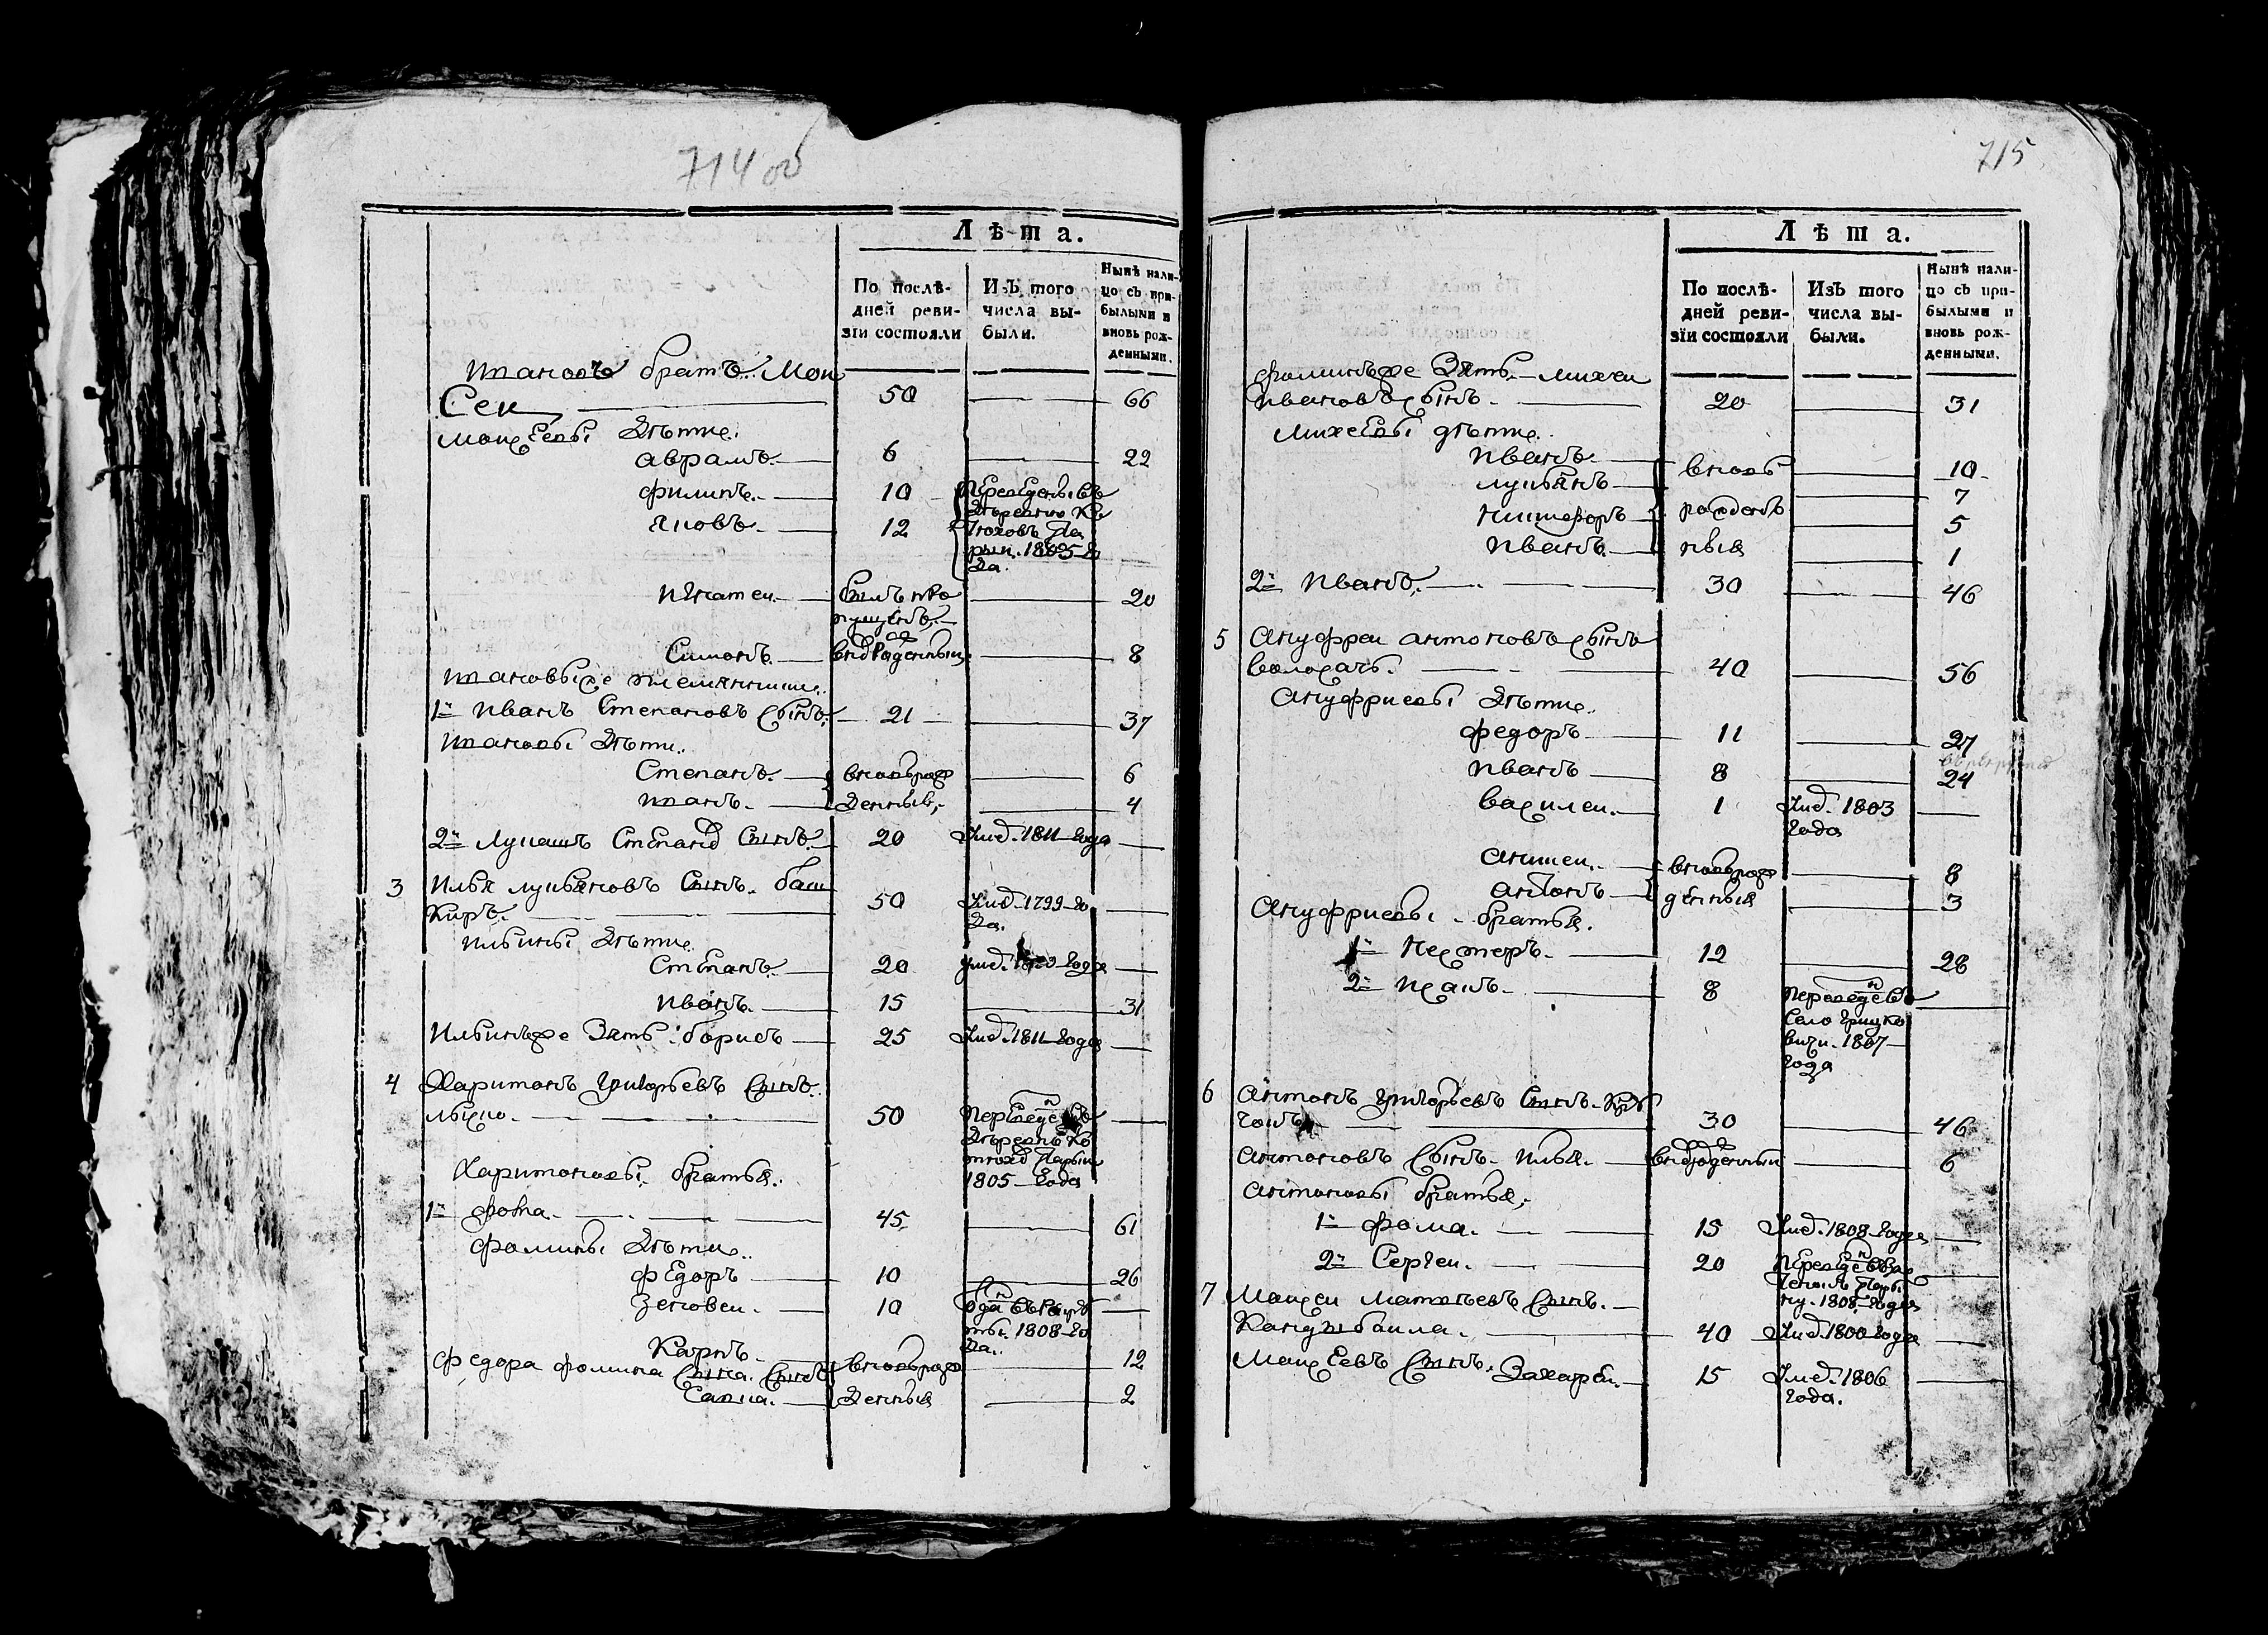 714 об
Лѣта.
По послѣ-
дней реви-
зіи состояли
Изъ того
числа вы-
были.
Нынѣ нали-
цо съ при-
былыми и
вновь рож-
денными.
братъ Мои
сеи 50 66
Моисеевы дѣти
аврамъ 6 22
филипъ 10
яковъ 12
Переведены въ
деревню Ко
рыи 1805 го
да
игнатеи былъ про
пущенъ 20
Симонъ вновьрожденныи 8
племянники
1й Иванъ Степановъ сынъ 21 37
дѣти
Степанъ вновьрож 6
денныя 4
2й Лукашъ Степановъ сынъ 20 Умѣ. 1811 года
3 Илья лукьяновъ сынъ баш
киръ 50 Умѣ. 1799 го
да.
Ильины дѣти
Степанъ 20 года
иванъ 15 31
Ильинъже зять борисъ 25 Умѣ. 1811 года
4 Харитонъ Григорьевъ сынъ
50 Переведенъ въ
деревню Ко
1805 года
Харитоновы братья
1й фома 45 61
фомины дѣти
федоръ 10 26
зеновеи 10 Отданъ въ рекру
ты. 1808 го
да.
Карпъ вновьрож 12
федора фомина сына сынъ
Савка денныя 2
715
Лѣта.
По послѣ-
дней реви-
зіи состояли
Изъ того
числа вы-
были.
Нынѣ нали-
цо съ при-
былыми и
вновь рож-
денными.
фоминъже зять михеи
ивановъ сынъ 20 31
михеевы дѣти
иванъ вновь 10
лукьянъ 7
никифоръ рожден 5
иванъ ныя 1
2й иванъ 30 46
5 Ануфреи антоновъ сынъ
40 56
Ануфриевы дѣти
федоръ 11 27
иванъ 8 24
василеи 1 Умѣ. 1803
года
аникеи вновьрож 8
антонъ денныя 3
Ануфриевы братья.
1й нестеръ 12 28
2й исакъ 8 Переведенъ въ
село Грицко
вичи 1807
года
6 антонъ Григорьевъ сынъ
30 46
антоновъ сынъ илья вновьрожденныи 6
антоновы братья
1й фома 15 Умѣ. 1808 года
2й Сергеи 20 Переведенъ
1808 года
7 Моисеи Матвѣевъ сынъ
40 Умѣ. 1800 года
Моисеевъ сынъ Захарьи 15 Умѣ. 1806
года.